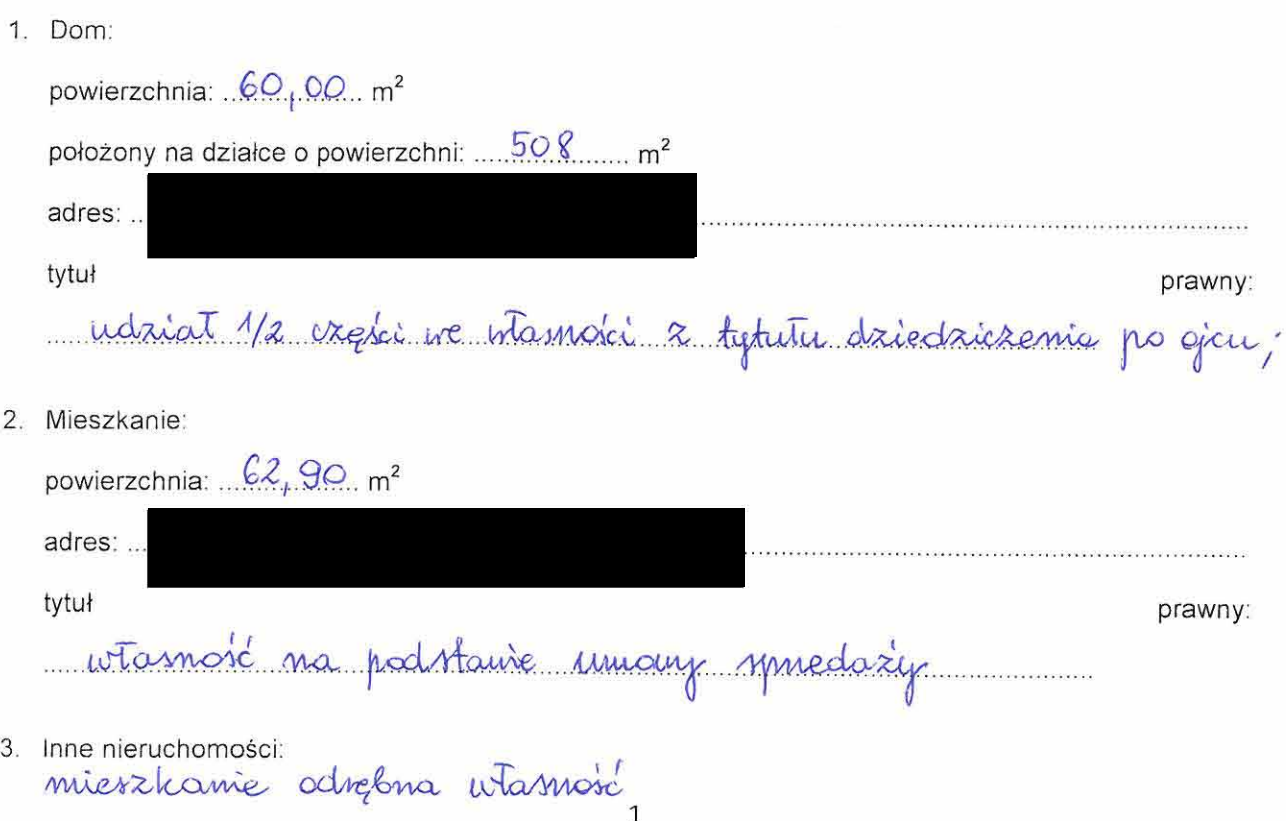 1. Dom:
powierzchnia: ..60,00... m²
położony na działce o powierzchni: .....508......... m²
adres: ..
tytuł prawny:
..... udział 1/2 części we własności z tytułu dziedziczenia po ojcu;
2. Mieszkanie:
powierzchnia: ...62,90.. m²
adres: ...
tytuł prawny:
..... własność na podstawie umowy sprzedaży
3. Inne nieruchomości:
mieszkanie odrębna własność
1